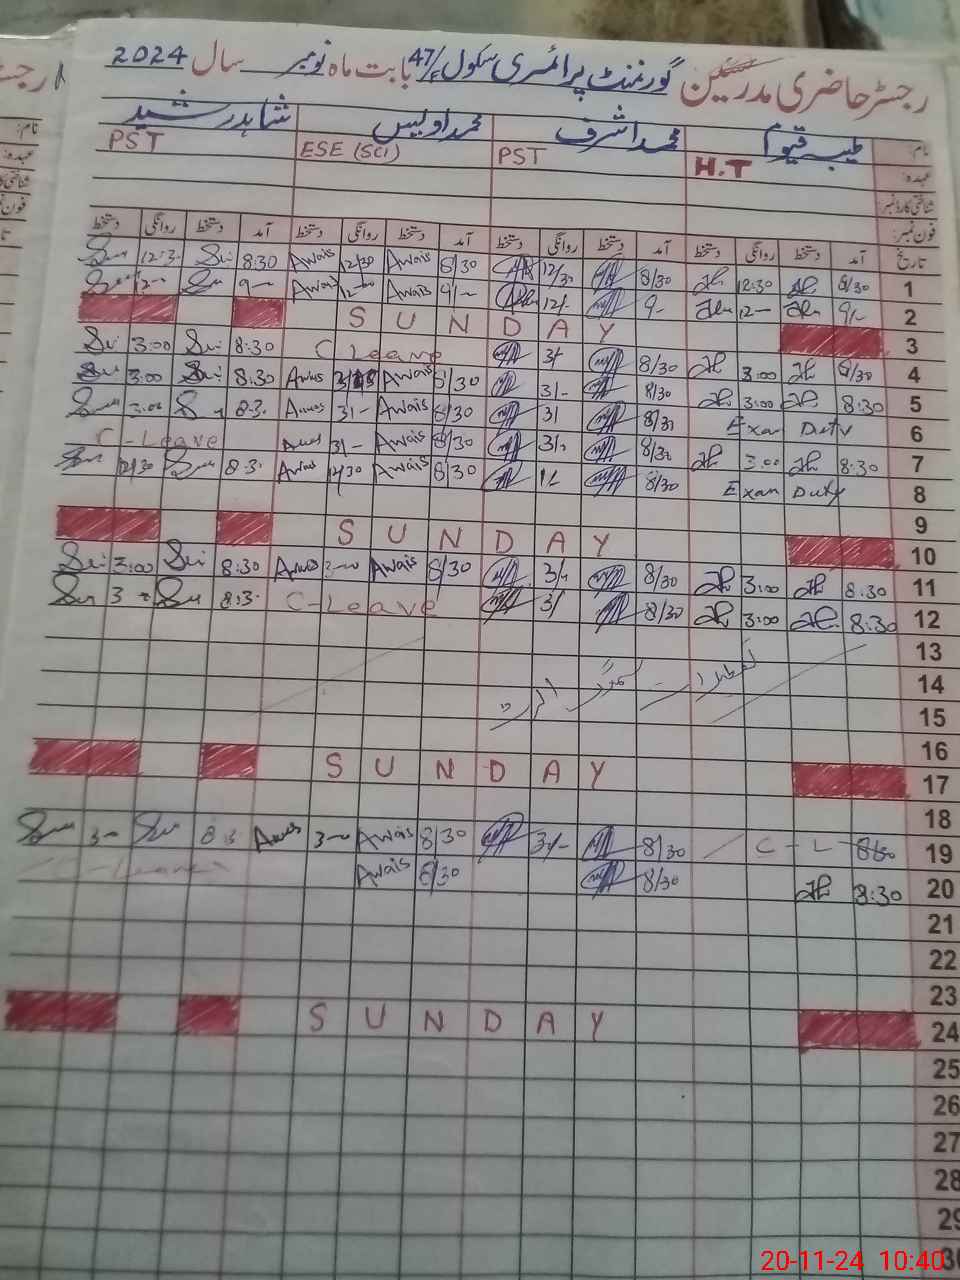 رجسٹر حاضری مدرسین گورنمنٹ پرائمری سکول 47/ بابت ماہ نومبر سال 2024
نام: طیبہ قیوم محمد اشرف محمد اویس شاہد رشید
عہدہ: H.T PST ESE (SCI) PST
شناختی کارڈ نمبر:
فون نمبر:
تاریخ آمد دستخط روانگی دستخط آمد دستخط روانگی دستخط آمد دستخط روانگی دستخط آمد دستخط روانگی دستخط
1 8/30 12:30 8/30 12/30 8/30 Awais 12/30 Awais 8:30 12:3
2 9/- 12- 9- 12/- 9/- Awais 12-00 Awais 9- 12-
3 SUNDAY
4 8/30 3:00 8/30 3/- C Leave 8:30 3:00
5 8:30 3:00 8/30 3/- 8/30 Awais Awais 8:30 3:00
6 Exam Duty 8/30 3/ 8/30 Awais 3/- Awais 8:3 3:00
7 8:30 3:00 8/30 3/- 8/30 Awais 3/- Awais C-Leave
8 Exam Duty 8/30 8/30 Awais 12/30 Awais 8:3 12/30
9
10 SUNDAY
11 8:30 3:00 8/30 3/- 8/30 Awais 3-00 Awais 8:30 3:00
12 8:30 3:00 8/30 3/ C-Leave 8:3 3
13
14
15
16
17 SUNDAY
18
19 8:30 C-L 8/30 3/- 8/30 Awais 3-00 Awais 8:3 3-
20 8:30 8/30 8/30 Awais C-Leave
21
22
23
24 SUNDAY
25
26
27
28
29
30
20-11-24 10:40